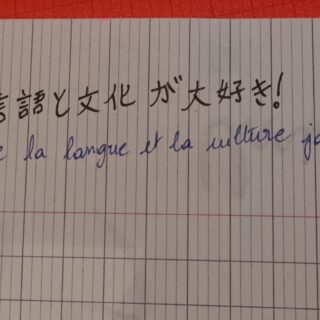 言語と文化が大好き!
la langue et la culture